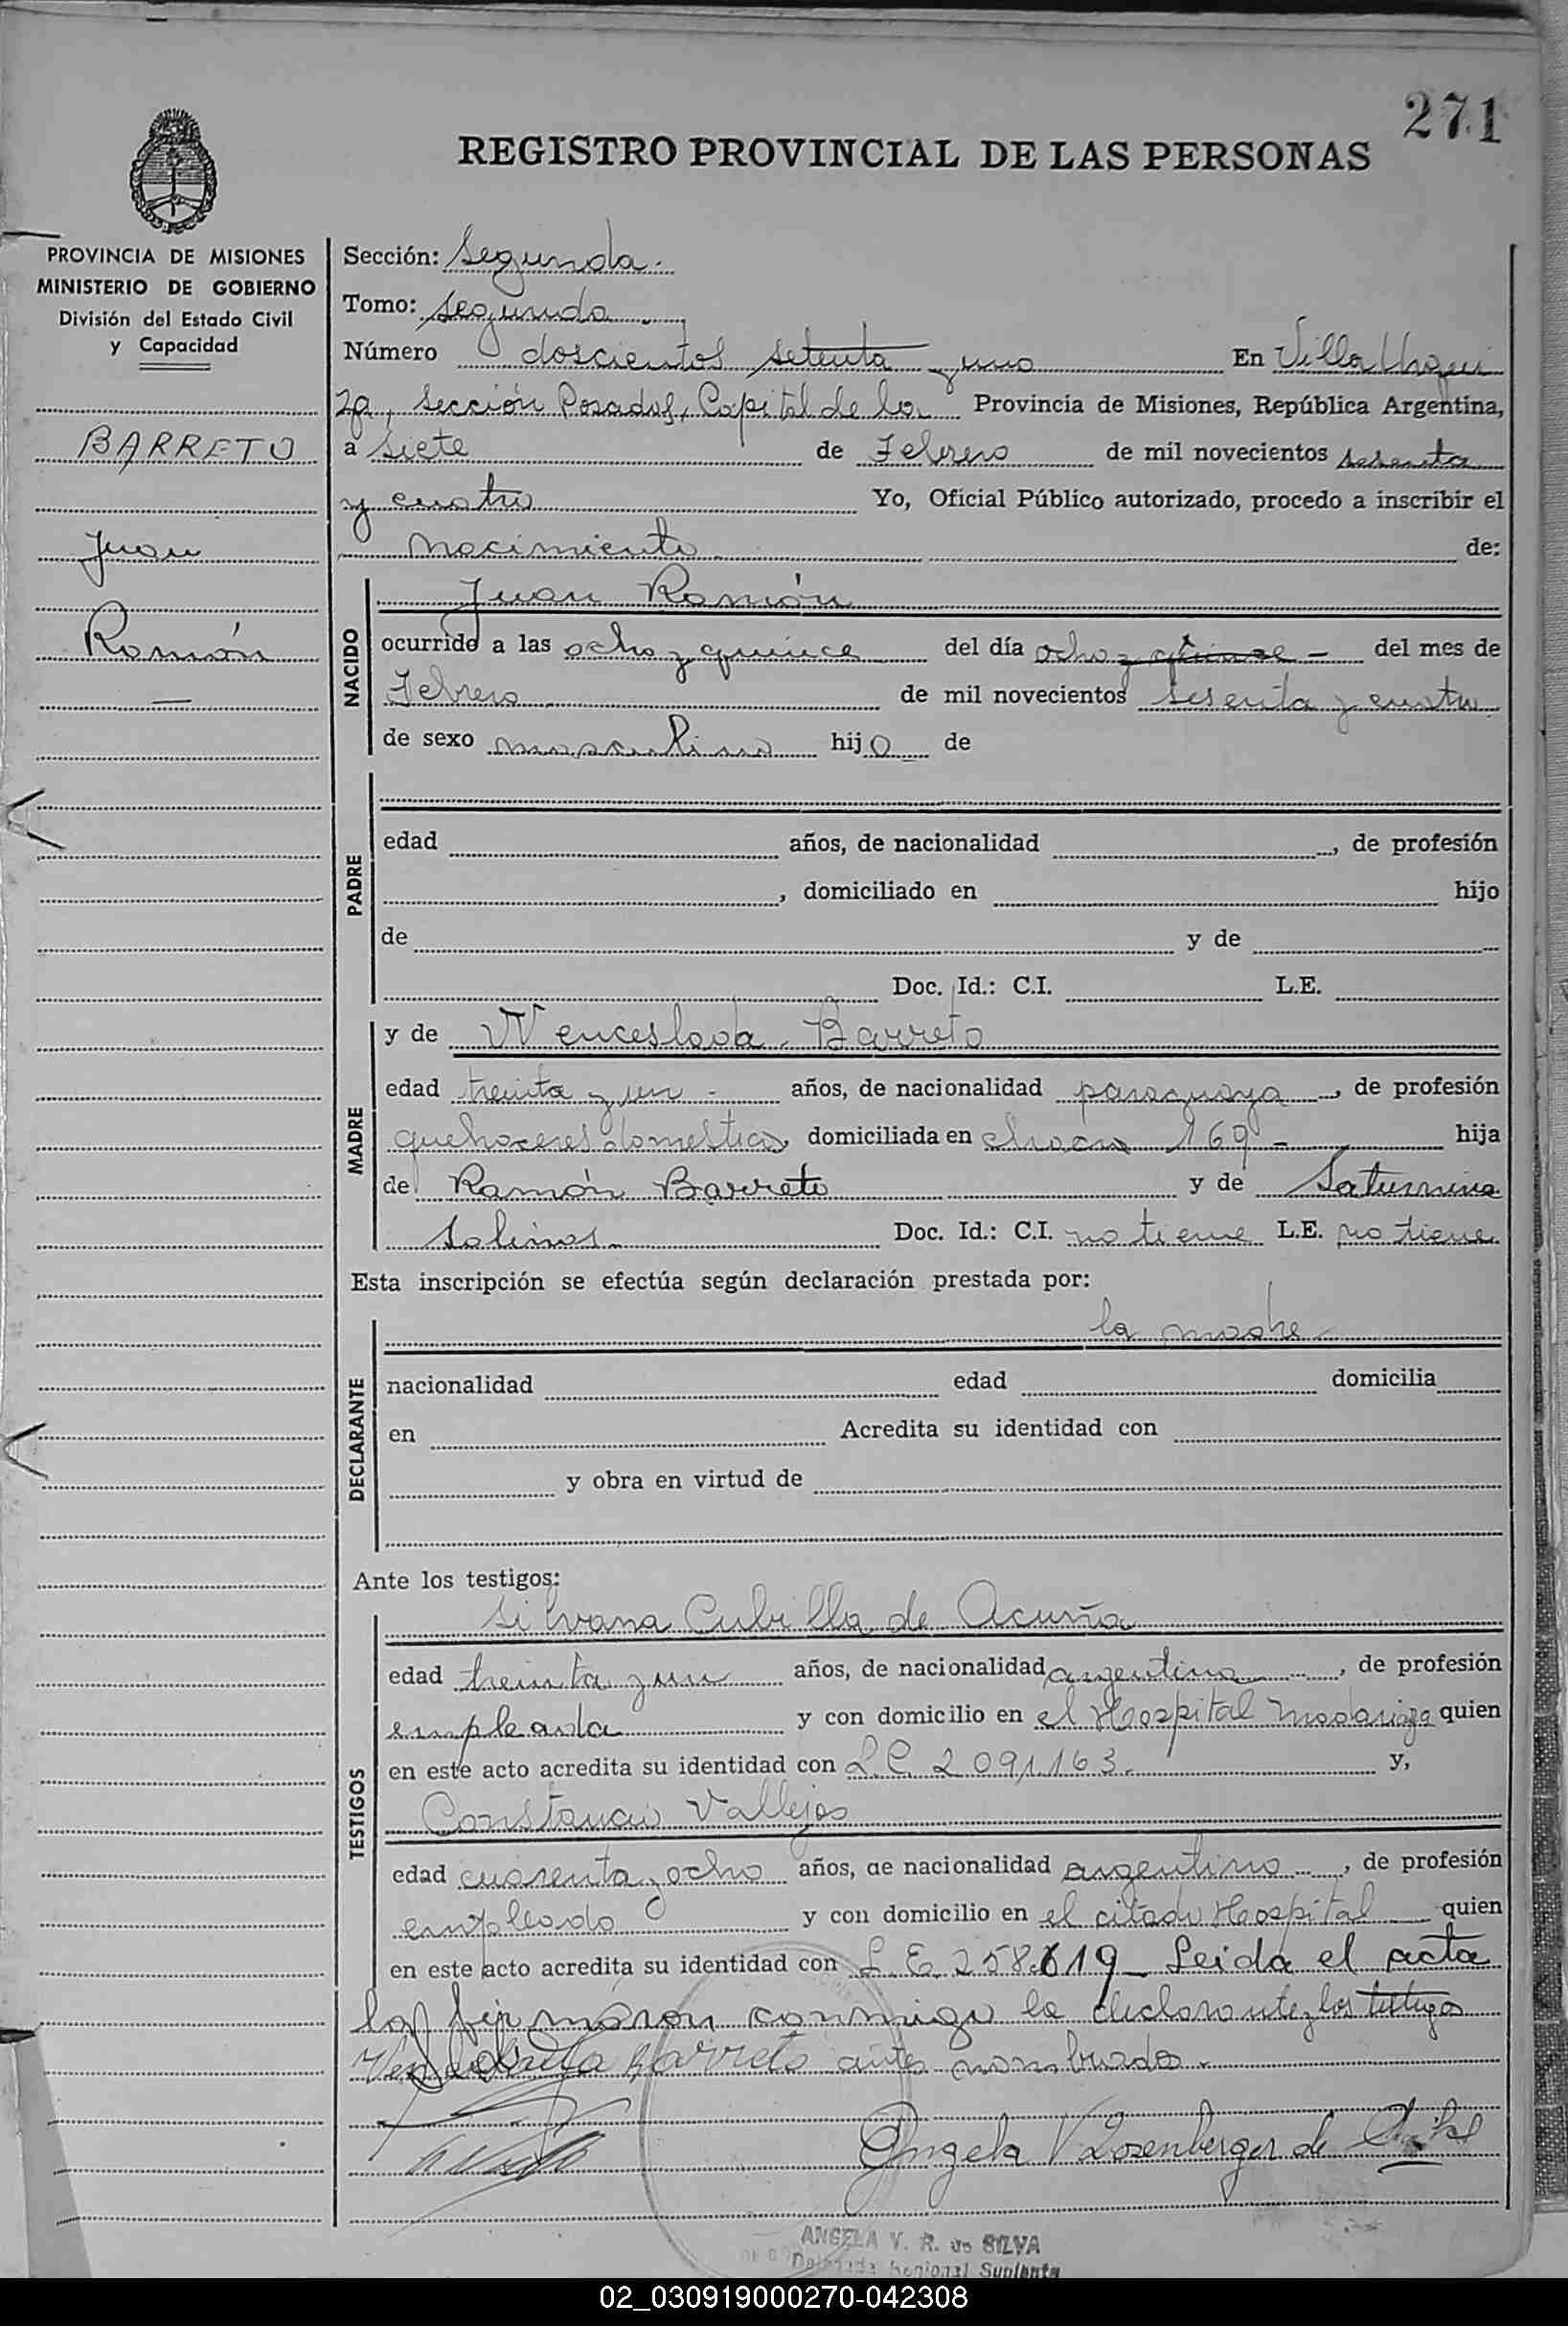 271
REGISTRO PROVINCIAL DE LAS PERSONAS
PROVINCIA DE MISIONES
MINISTERIO DE GOBIERNO
División del Estado Civil
y Capacidad
BARRETO
Juan
Ramón
Sección: Segunda.
Tomo: segundo
Número doscientos setenta y uno En Villa Urquiza
2a, Sección Posadas, Capital de la Provincia de Misiones, República Argentina,
a siete de Febrero de mil novecientos sesenta
y cuatro Yo, Oficial Público autorizado, procedo a inscribir el
nacimiento de:
NACIDO
Juan Ramón
ocurrido a las ocho y quince del día ocho y quince - del mes de
Febrero de mil novecientos sesenta y cuatro
de sexo masculino hijo de
PADRE
edad años, de nacionalidad , de profesión
, domiciliado en hijo
de y de
Doc. Id.: C.I. L.E.
MADRE
y de Wenceslada Barreto
edad treinta y un - años, de nacionalidad paraguaya, de profesión
quehaceres domesticos, domiciliada en chacra 169 - hija
de Ramón Barreto y de Saturnina
Salinas Doc. Id.: C.I. no tiene L.E. no tiene
Esta inscripción se efectúa según declaración prestada por:
DECLARANTE
la madre
nacionalidad edad domicilia
en Acredita su identidad con
y obra en virtud de
Ante los testigos:
TESTIGOS
Silvana Cubilla de Acuña
edad treinta y un años, de nacionalidad argentina, de profesión
empleada y con domicilio en el Hospital Madariaga quien
en este acto acredita su identidad con L.C. 2.091.163. y,
Constancio Vallejos
edad cuarenta y ocho años, de nacionalidad argentino, de profesión
empleado y con domicilio en el citado Hospital quien
en este acto acredita su identidad con L.E. 258.619 - Leida el acta
la firmaron conmigo la declarante y los testigos
Barreto antes nombrados.
Angela V Rosenberger de
ANGELA V. R. de SILVA
Delegada Regional Suplente
02_030919000270-042308